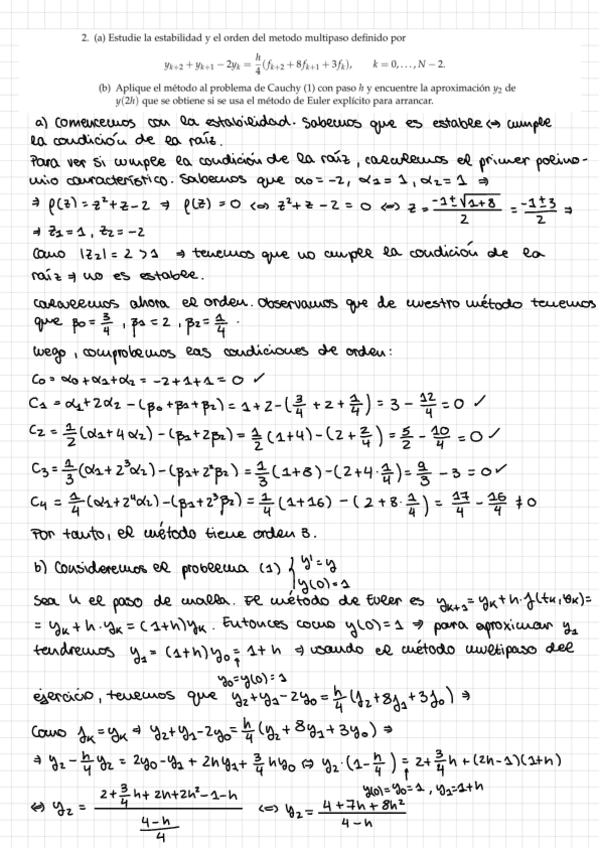 2. (a) Estudie la estabilidad y el orden del metodo multipaso definido por
y_{k+2} + y_{k+1} − 2y_k = h/4 (f_{k+2} + 8f_{k+1} + 3f_k), k = 0, . . . , N − 2.
(b) Aplique el método al problema de Cauchy (1) con paso h y encuentre la aproximación y_2 de
y(2h) que se obtiene si se usa el método de Euler explícito para arrancar.
a) Comencemos con la estabilidad. Sabemos que es estable ⇔ cumple
la condición de la raíz.
Para ver si cumple la condición de la raíz, calculemos el primer polino-
mio característico. Sabemos que α_0 = -2, α_1 = 1, α_2 = 1 ⇒
⇒ ρ(z) = z² + z - 2 ⇒ ρ(z) = 0 ⇔ z² + z - 2 = 0 ⇔ z = (-1 ± √(1+8))/2 = (-1 ± 3)/2 ⇒
⇒ z_1 = 1, z_2 = -2
Como |z_2| = 2 > 1 ⇒ tenemos que no cumple la condición de la
raíz ⇒ no es estable.
Calculemos ahora el orden. Observamos que de nuestro método tenemos
que β_0 = 3/4, β_1 = 2, β_2 = 1/4.
Luego, comprobemos las condiciones de orden:
C_0 = α_0 + α_1 + α_2 = -2 + 1 + 1 = 0 ✓
C_1 = α_1 + 2α_2 - (β_0 + β_1 + β_2) = 1 + 2 - (3/4 + 2 + 1/4) = 3 - 12/4 = 0 ✓
C_2 = 1/2 (α_1 + 4α_2) - (β_1 + 2β_2) = 1/2 (1+4) - (2 + 2/4) = 5/2 - 10/4 = 0 ✓
C_3 = 1/3 (α_1 + 2³α_2) - (β_1 + 2²β_2) = 1/3 (1+8) - (2 + 4·1/4) = 9/3 - 3 = 0 ✓
C_4 = 1/4 (α_1 + 2⁴α_2) - (β_1 + 2³β_2) = 1/4 (1+16) - (2 + 8·1/4) = 17/4 - 16/4 ≠ 0
Por tanto, el método tiene orden 3.
b) Consideremos el problema (1) { y' = y
y(0) = 1
Sea h el paso de malla. El método de Euler es y_{k+1} = y_k + h·f(t_k, y_k) =
= y_k + h·y_k = (1+h)y_k. Entonces como y(0) = 1 ⇒ para aproximar y_1
tendremos y_1 = (1+h)y_0 = 1+h ⇒ usando el método multipaso del
y_0 = y(0) = 1
ejercicio, tenemos que y_2 + y_1 - 2y_0 = h/4 (f_2 + 8f_1 + 3f_0) ⇒
Como f_k = y_k ⇒ y_2 + y_1 - 2y_0 = h/4 (y_2 + 8y_1 + 3y_0) ⇒
⇒ y_2 - h/4 y_2 = 2y_0 - y_1 + 2hy_1 + 3/4 hy_0 ⇔ y_2·(1 - h/4) = 2 + 3/4 h + (2h-1)(1+h)
y(0) = y_0 = 1, y_1 = 1+h
⇔ y_2 = (2 + 3/4 h + 2h + 2h² - 1 - h)/((4-h)/4) ⇔ y_2 = (4 + 7h + 8h²)/(4-h)